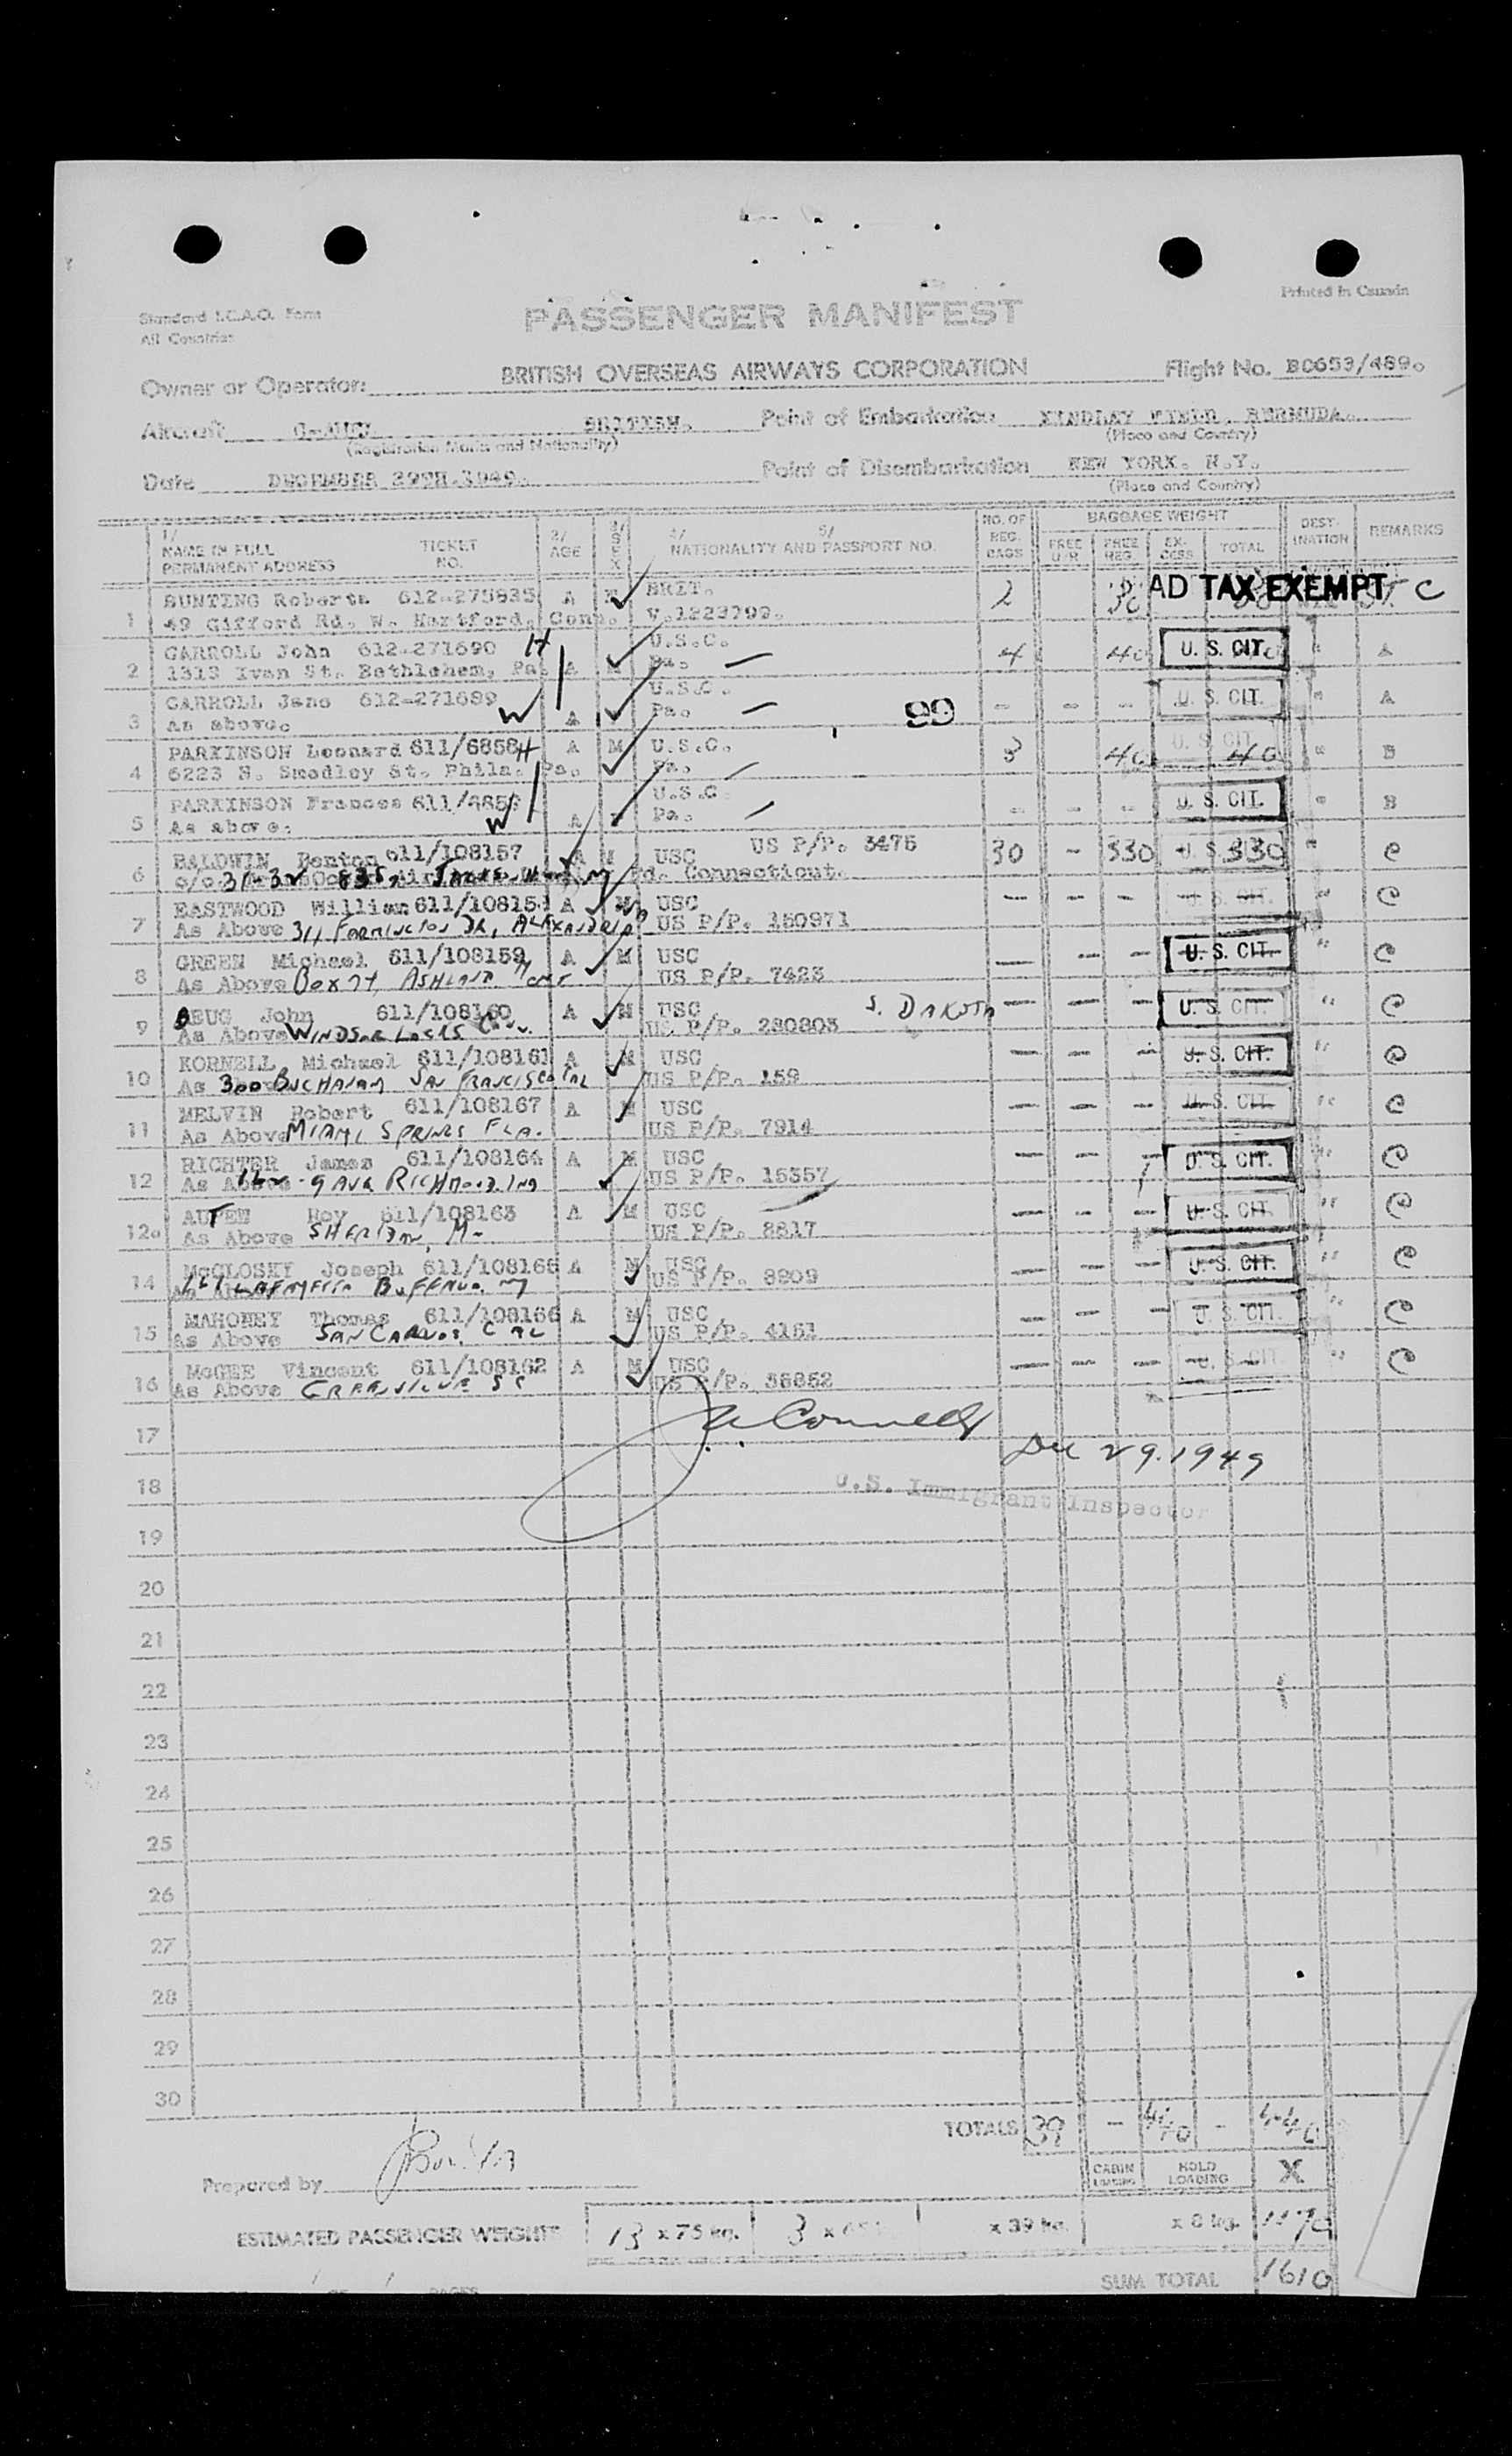 Standard I.C.A.O. Form
All Countries
PASSENGER MANIFEST
Printed in Canada
Owner or Operator: BRITISH OVERSEAS AIRWAYS CORPORATION Flight No. BC653/489.
Aircraft BRITISH. Point of Embarkation KINDLEY FIELD, BERMUDA.
(Registration Marks and Nationality) (Place and Country)
Date DECEMBER 29TH.1949. Point of Disembarkation NEW YORK. N.Y.
(Place and Country)
1/ NAME IN FULL PERMANENT ADDRESS TICKET NO. 2/ AGE 3/ SEX 4/ 5/ NATIONALITY AND PASSPORT NO. NO. OF REG. BAGS BAGGAGE WEIGHT FREE U/R FREE REG. EXCESS TOTAL DESTINATION REMARKS
1 BUNTING Roberta 612-275835 A BRIT. 2 AD TAX EXEMPT C
49 Gifford Rd. W. Hartford. Conn. V.1223799.
2 CARROLL John 612-271690 H U.S.C. 4 40 U. S. CIT. " A
1313 Ivan St. Bethlehem, Pa. A M Pa.
3 CARROLL Jane 612-271689 U.S.C. - - - U. S. CIT. " A
As above. W A Pa. 99
4 PARKINSON Leonard 611/6858 H A M U.S.C. 3 40 U. S. CIT. 40 " B
6223 N. Smedley St. Phila. Pa. Pa.
5 PARKINSON Frances 611/ U.S.C. - - - U. S. CIT. " B
As above. W A Pa.
6 BALDWIN Benton 611/108157 A M USC US P/P. 3475 30 - 330 - U. S. 330 " C
c/o 31-32 Connecticut.
7 EASTWOOD William 611/10815 A M USC - - - U. S. CIT. " C
As Above 311 Farmington Dr, Alexandria US P/P. 150971
8 GREEN Michael 611/108159 A M USC - - - U. S. CIT. " C
As Above Box 74, Ashland US P/P. 7423
9 John 611/108160 A M USC S. DAKOTA - - - U. S. CIT. " C
As Above WINDSOR LOCKS Conn. US P/P. 280803
10 KORNELL Michael 611/108161 A M USC - - - U. S. CIT. " C
As 300 BUCHANAN SAN FRANCISCO CAL US P/P. 159
11 MELVIN Robert 611/108167 A M USC - - - U. S. CIT. " C
As Above MIAMI SPRINGS FLA. US P/P. 7914
12 RICHTER James 611/108164 A M USC - - U. S. CIT. " C
As Above 9 AVE RICHMOND IND US P/P. 15357
12a AUTEN Roy 611/108163 A M USC - - - U. S. CIT. " C
As Above SHERIDAN, US P/P. 8817
14 McCLOSKY Joseph 611/108165 A M USC - - - U. S. CIT. " C
LAFAYETTE BUFFALO NY US P/P. 8909
15 MAHONEY Thomas 611/108166 A M USC - - - U. S. CIT. " C
As Above SAN CARLOS, CAL US P/P. 4151
16 McGEE Vincent 611/108162 A M USC - - - U. S. CIT. " C
As Above GREENVILLE SC US P/P. 36852
17
Dec 29.1949
18 U.S. Immigrant Inspector
19
20
21
22
23
24
25
26
27
28
29
30
TOTALS 39 - 440 - 440
CABIN LOADING HOLD LOADING X
Prepared by
ESTIMATED PASSENGER WEIGHT 13 x 75 kg. 3 x 65 x 39 kg. x 8 kg. 1170
1 OF 1 PAGES SUM TOTAL 1610